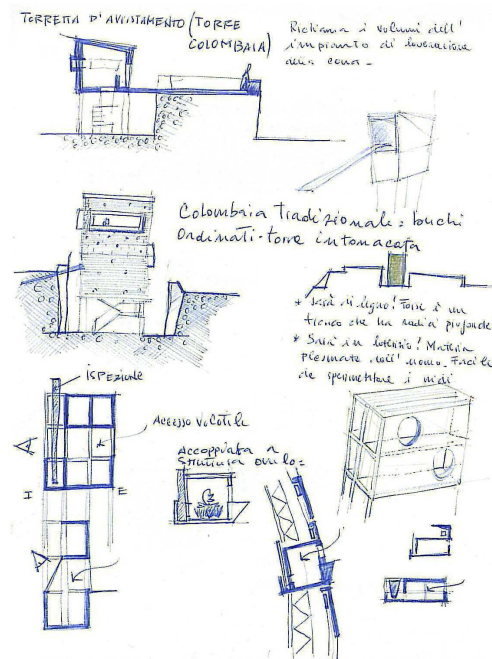 TORRETTA D'AVVISTAMENTO (TORRE
COLOMBAIA)
Richiama i volumi dell'
impianto di lavorazione
della
Colombaia tradizionale = buchi
Ordinati - torre intonacata
* Sarà di legno! Forse è un
tronco che ha radici profonde
* Sarà in laterizio! Materia
plasmata dall'uomo. Facile
da sperimentare i nidi
ISPEZIONE
ACCESSO VOLATILE
I
E
Accoppiata a